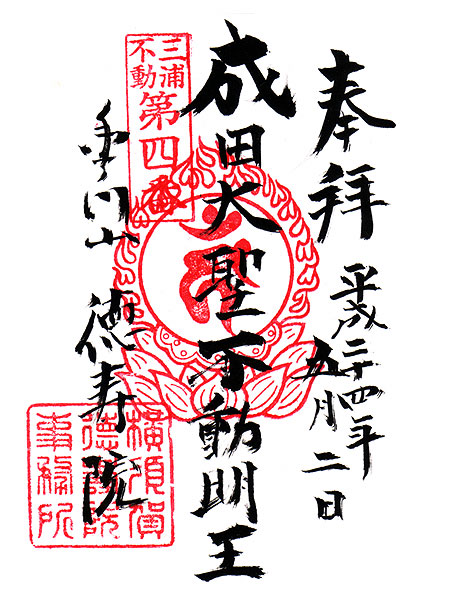 奉拝
平成二十四年
五月二日
成田大聖不動明王
三浦
不動
第四番
徳寿院
横須賀
徳寿院
事務所